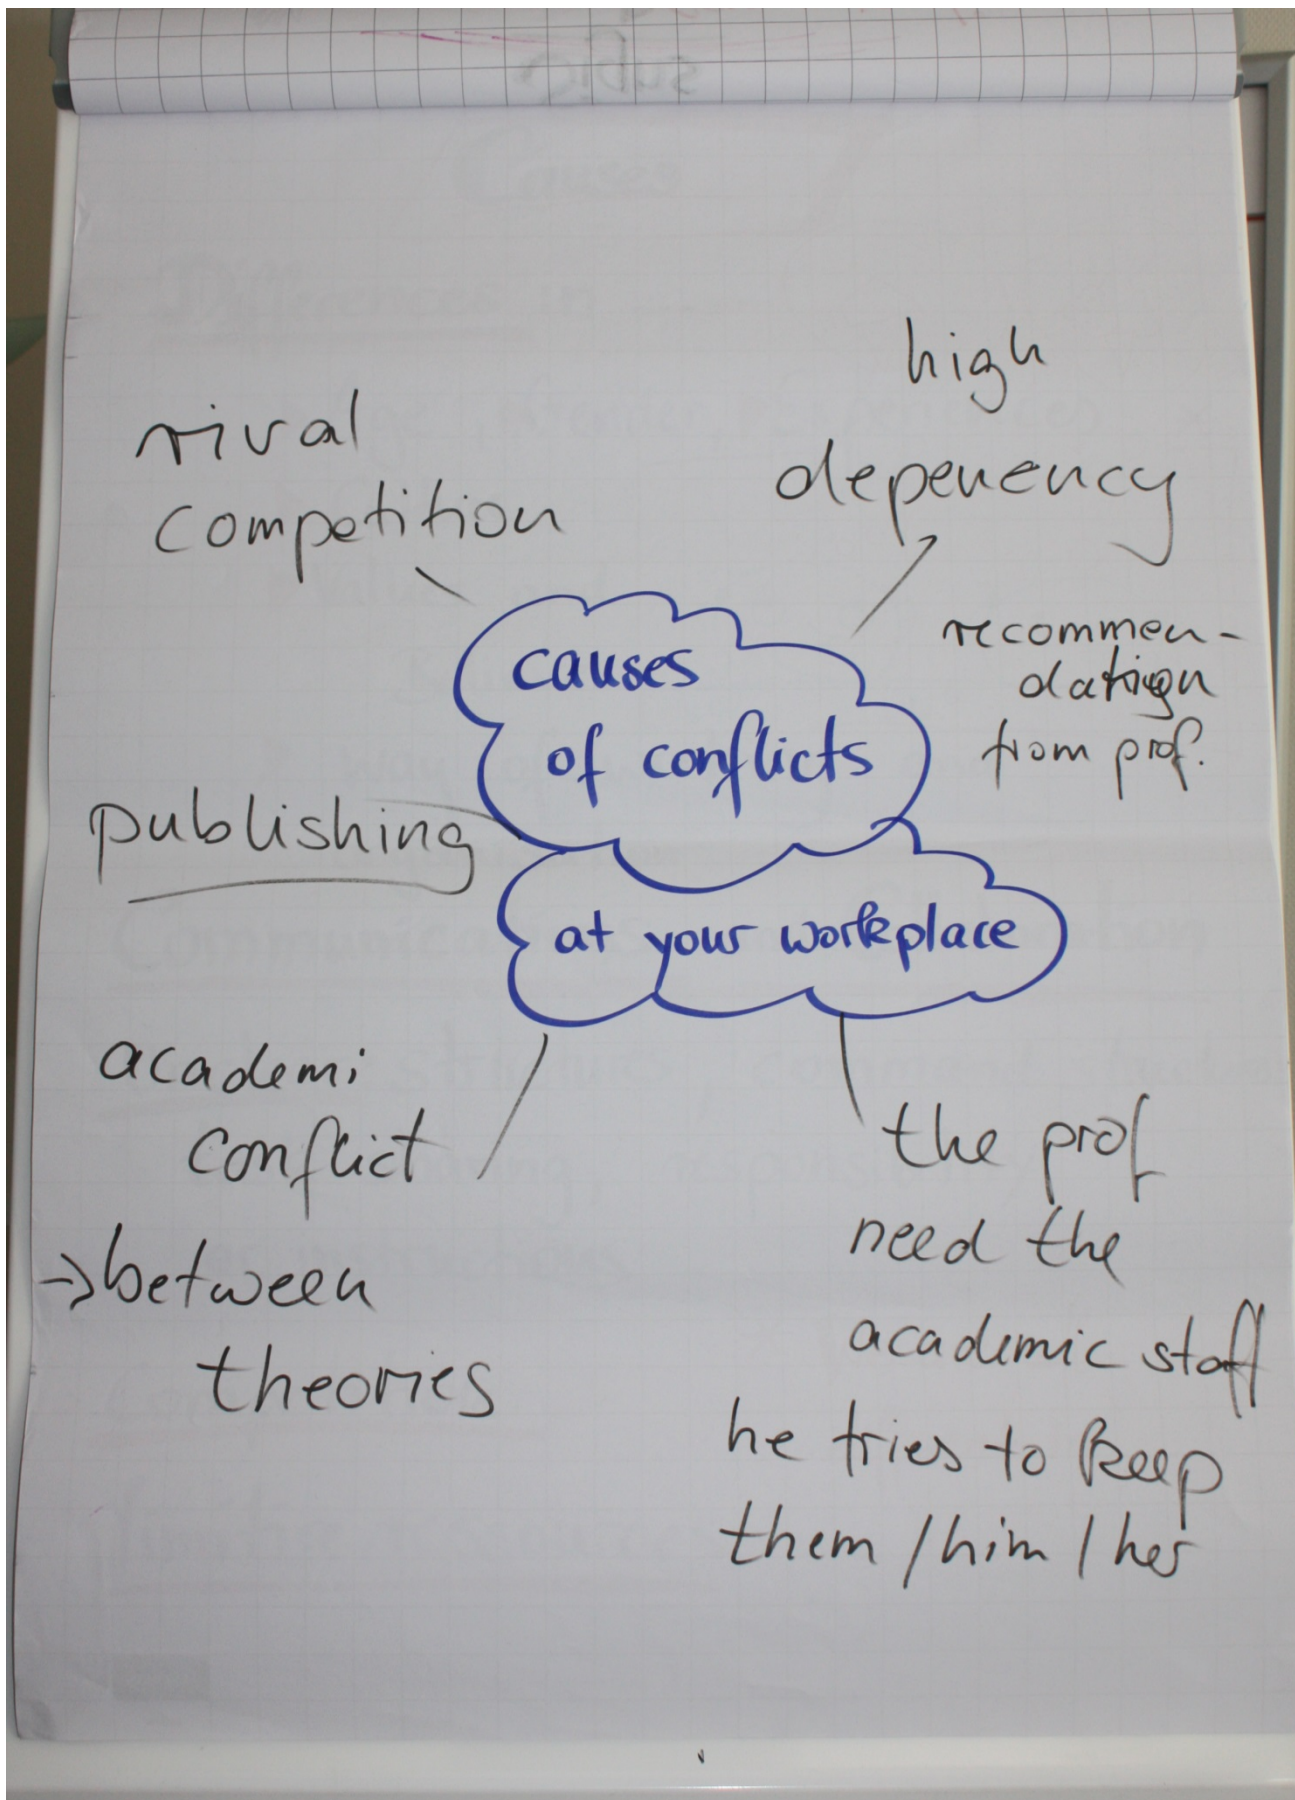 causes
of conflicts
at your workplace
rival
competition
high
depenency
recommen-
dation
from prof.
publishing
academi
conflict
→between
theories
the prof
need the
academic staff
he tries to keep
them / him / her